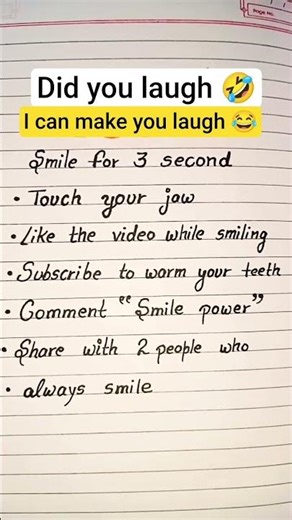 Did you laugh 🤣
I can make you laugh 😂
Smile for 3 second
• Touch your jaw
• Like the video while smiling
• Subscribe to warm your teeth
• Comment “Smile power”
• Share with 2 people who
• always smile